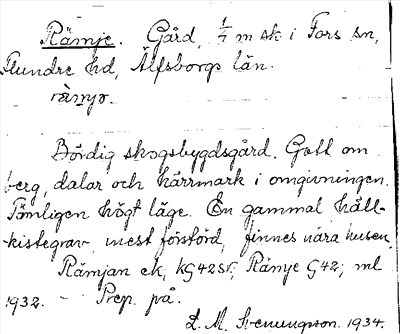 Rämje. Gård, 1/4 m sk i Fors sn,
Flundre hd, Älfsborgs län.
ràmyə.
Bördig skogsbygdsgård. Gott om
berg, dalar och kärrmark i omgivningen.
Tämligen högt läge. En gammal häll-
kistegrav, mest förstörd, finnes nära husen.
Rämjan ek, KG42Sr, Rämye G42; ml
1932. - Prep. på.
L. M. Svenungson. 1934.